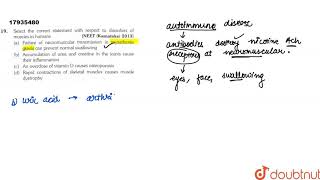 17935480
19. Select the correct statement with respect to disorders of
muscles in humans [NEET (Karnataka) 2013]
(a) Failure of neuromuscular transmission in myasthenia
gravis can prevent normal swallowing
(b) Accumulation of urea and creatine in the joints cause
their inflammation
(c) An overdose of vitamin D causes osteoporosis
(d) Rapid contractions of skeletal muscles causes muscle
dystrophy
autoimmune disease
antibodies destroy nicotine Ach
receptors at neuromuscular.
eyes, face, swallowing
b) uric acid → arthri
doubtnut